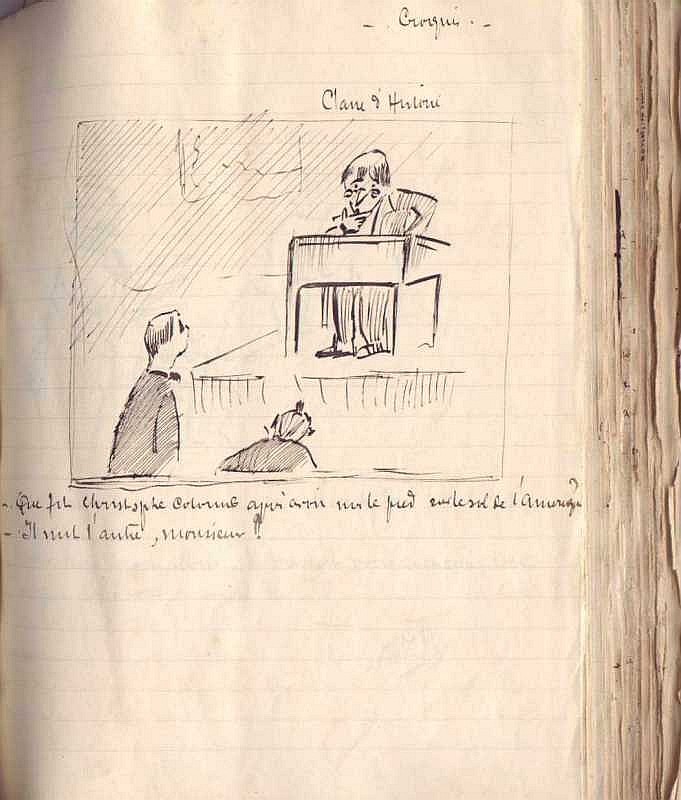 - Croquis. -
Classe d'Histoire
- Que fit Christophe Colomb après avoir mis le pied sur le sol de l'Amérique
- Il mit l'autre, monsieur !